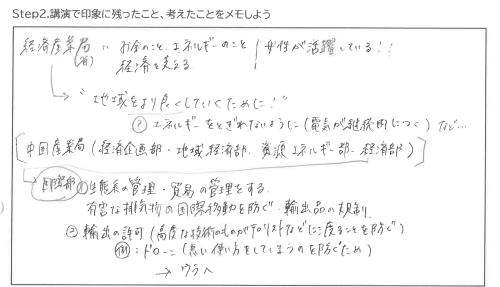 Step2.講演で印象に残ったこと、考えたことをメモしよう
経済産業局 (省) いお金のこと、エネルギーのこと 女性が活躍している!!
経済を支える
"地域をより良くしていくために!"
② エネルギーをとぎれないように (電気が継続的につく) など…
中国産業局 (経済企画部・地域経済部、資源エネルギー部、経済部)
国際部 ① 生態系の管理・貿易の管理をする。
有害な排気物の国際移動を防ぐ、輸出品の規制
② 輸出の許可 (高度な技術のものがテロリストなどに渡ることを防ぐ)
例: ドローン (悪い使い方をしてしまうのを防ぐため)
→ ウラへ